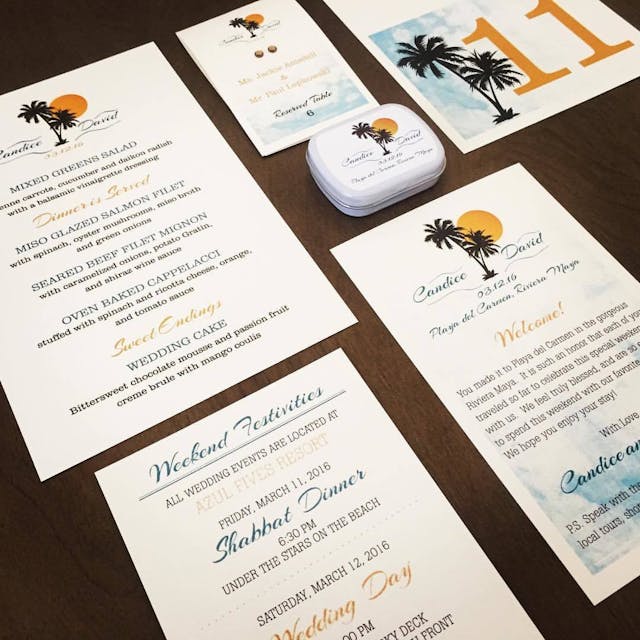 Candice David
03.12.16
MIXED GREENS SALAD
carrots, cucumber and daikon radish
with a balsamic vinaigrette dressing
Dinner is Served
MISO GLAZED SALMON FILET
with spinach, oyster mushrooms, miso broth
and green onions
SEARED BEEF FILET MIGNON
with caramelized onions, potato Gratin,
and shiraz wine sauce
OVEN BAKED CAPPELACCI
stuffed with spinach and ricotta cheese, orange,
and tomato sauce
Sweet Endings
WEDDING CAKE
Bittersweet chocolate mousse and passion fruit
creme brule with mango coulis
Candice David
Ms. Jackie
&
Mr. Paul
Reserved Table
6
11
Candice David
03.12.16
Playa del Carmen, Riviera Maya
Candice David
03.12.16
Playa del Carmen, Riviera Maya
Welcome!
You made it to Playa del Carmen in the gorgeous
Riviera Maya. It is such an honor that each of you
traveled so far to celebrate this special
with us. We feel truly blessed, and are
to spend this weekend with our favori
We hope you enjoy your stay!
With Love
Candice an
P.S. Speak with the
local tours, sho
Weekend Festivities
ALL WEDDING EVENTS ARE LOCATED AT
AZUL FIVES RESORT
FRIDAY, MARCH 11, 2016
Shabbat Dinner
6:30 PM
UNDER THE STARS ON THE BEACH
SATURDAY, MARCH 12, 2016
Wedding Day
PM
KY DECK
FRONT